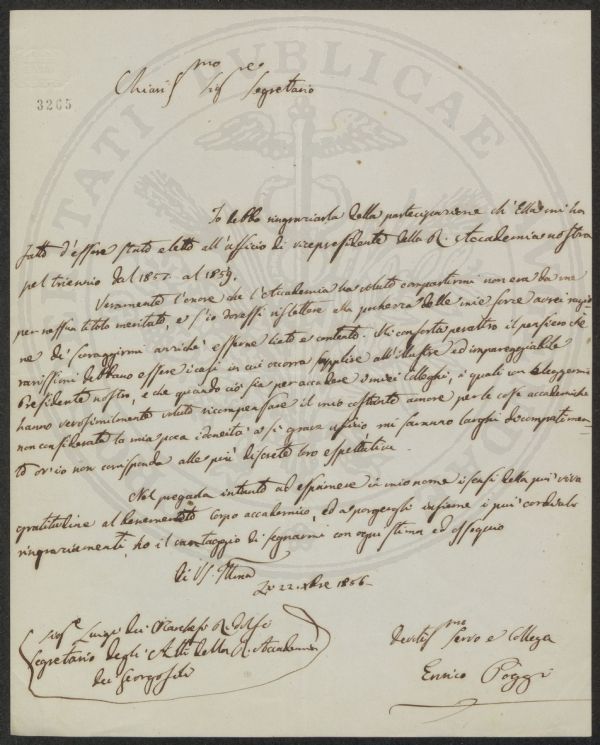 3265
Chiariss.mo Sig.re Segretario
Io debbo ringraziarla della partecipazione ch'Ella mi ha
fatto d'essere stato eletto all'ufficio di vicepresidente della R. Accademia nostra
pel triennio dal 1857 al 1859.
Veramente l'onore che l'Accademia ha voluto compartirmi non era da me
per nessun titolo meritato, e s'io dovessi riflettere alla pochezza delle mie forze avrei ragio-
ne di scoraggirmi anziché esserne lieto e contento. Mi conforta peraltro il pensiero che
rarissimi debbano essere i casi in cui occorra supplire all'illustre ed impareggiabile
Presidente nostro, e che quando ciò sia per accadere i miei Colleghi, i quali con eleggermi
hanno verosimilmente voluto ricompensare il mio costante amore per le cose accademiche
non considerata la mia poca idoneità a sì grave ufficio mi saranno larghi di compatimen-
to ov'io non corrisponda alle più discrete loro espettative.
Nel pregarla intanto ad esprimere in mio nome i sensi della più viva
gratitudine al benemerito Corpo accademico, ed a porgergli insieme i più cordiali
ringraziamenti, ho il vantaggio di segnarmi con ogni stima ed ossequio
Di VS. Ill.ma
Li 22. Xbre 1856.
Sig.re Luigi dei Marchesi Ridolfi
Segretario degli Atti della R. Accademia
dei Georgofili
devotiss.mo servo e collega
Enrico Poggi